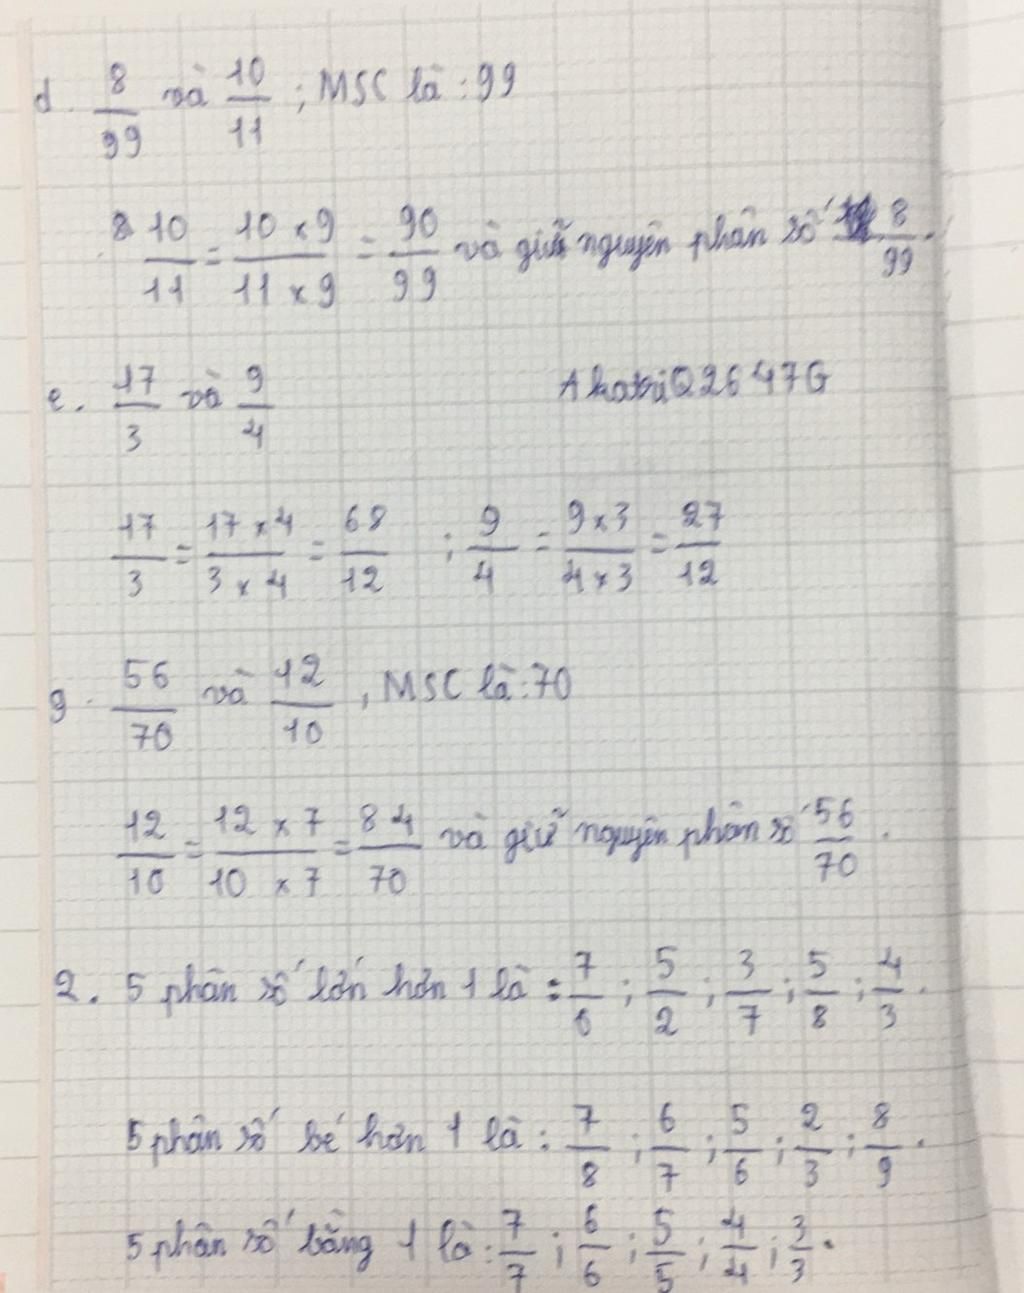 d. 8/99 và 10/11 ; MSC là : 99
10/11 = 10 x 9/11 x 9 = 90/99 và giữ nguyên phân số 8/99.
e. 17/3 và 9/4
AkatsuQ2647G
17/3 = 17 x 4/3 x 4 = 68/12 ; 9/4 = 9 x 3/4 x 3 = 27/12
g. 56/70 và 12/10 , MSC là : 70
12/10 = 12 x 7/10 x 7 = 84/70 và giữ nguyên phân số 56/70.
2. 5 phân số lớn hơn 1 là : 7/6 ; 5/2 ; 3/7 ; 5/8 ; 4/3.
5 phân số bé hơn 1 là : 7/8 ; 6/7 ; 5/6 ; 2/3 ; 8/9.
5 phân số bằng 1 là : 7/7 ; 6/6 ; 5/5 ; 4/4 ; 3/3.